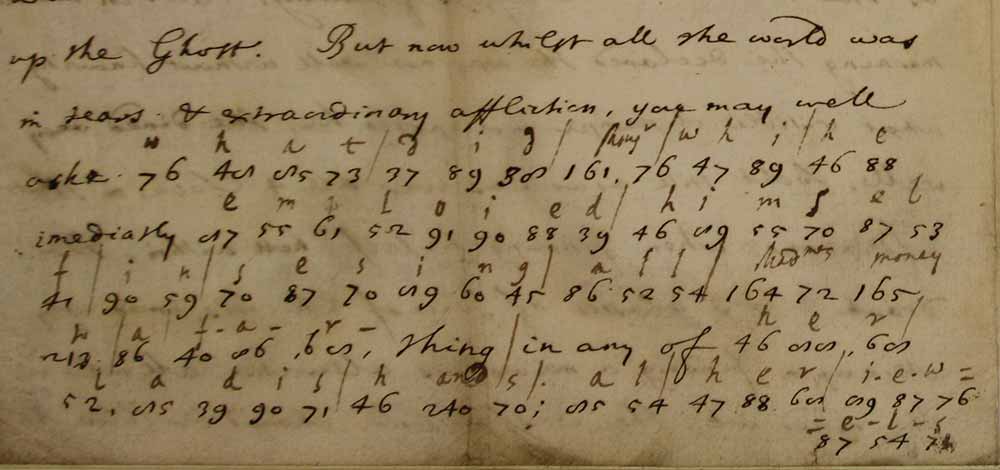 up the Ghost. But now whilst all the world was
in tears & extraordinary affliction, you may well
w h a t / d i d / / w h i / h e
aske. 76 48 85 73 37 89 38 161. 76 47 89 46 88
e m p l o i e d / h i m s e l
imediatly 87 55 61 52 91 90 88 39 46 89 55 70 87 53
f / i n / s e s i n g / a l l / Madmes money
41 90 59 70 87 70 89 60 45 86 52 54 164 72 165
a f-a-r- h e r /
213. 86 40 86 ,68, thing / in any of 46 88, 68
l a d i s / h and s /. a l / h e r / i-e-w=
52, 85 39 90 71 46 240 70; 85 54 47 88 68 89 87 76
=e-l-s
87 54